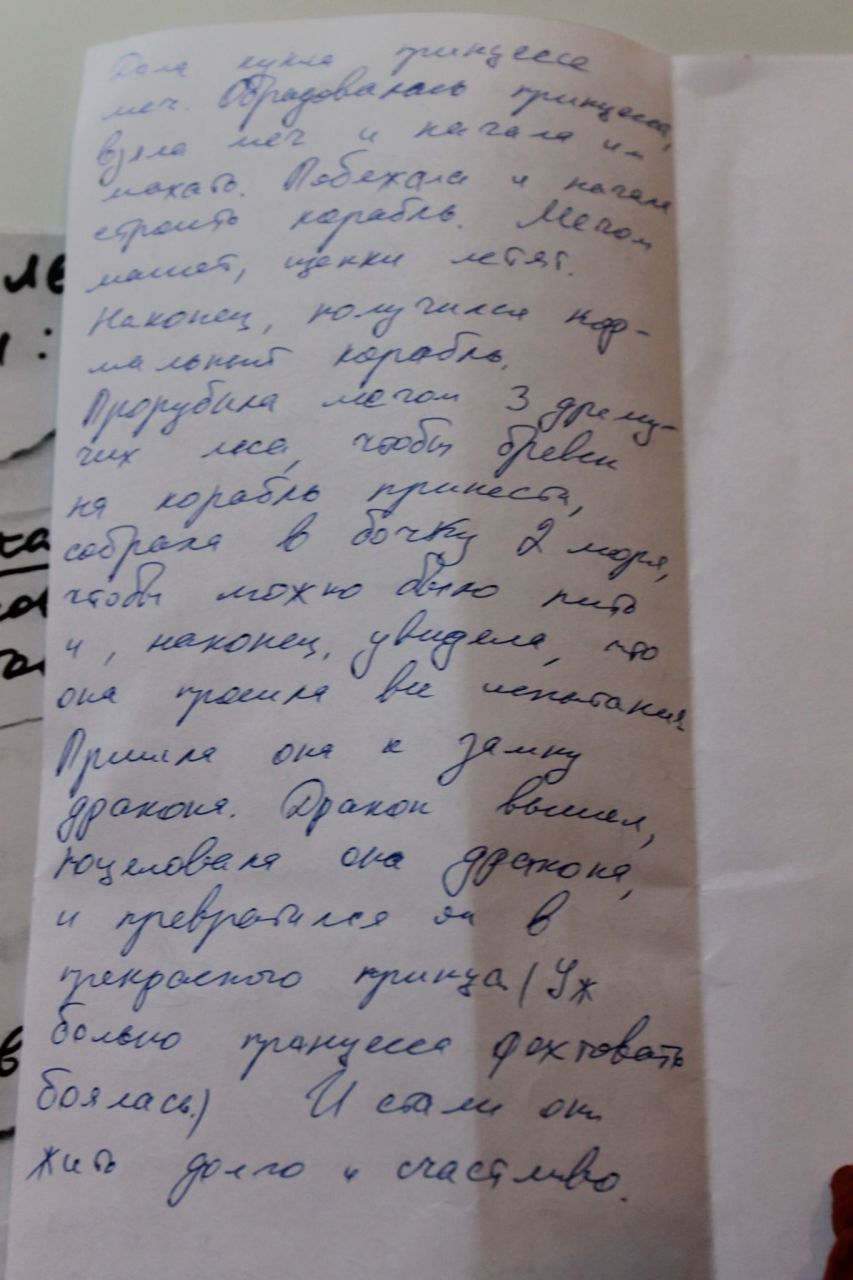 Дала кукла принцессе
меч. Обрадовалась принцесса,
взяла меч и начала им
махать. Побежала и начала
строить корабль. Мечом
машет, щепки летят.
Наконец, получился нор-
мальный корабль.
Прорубила мечом 3 дрему-
чих леса, чтобы бревен
на корабль принести,
собрала в бочку 2 моря,
чтобы можно было пить
и, наконец, увидела, что
она прошла все испытания.
Пришла она к замку
дракона. Дракон вышел,
поцеловала она дракона,
и превратился он в
прекрасного принца (Уж
больно принцесса фехтовать
боялась.) И стали они
жить долго и счастливо.